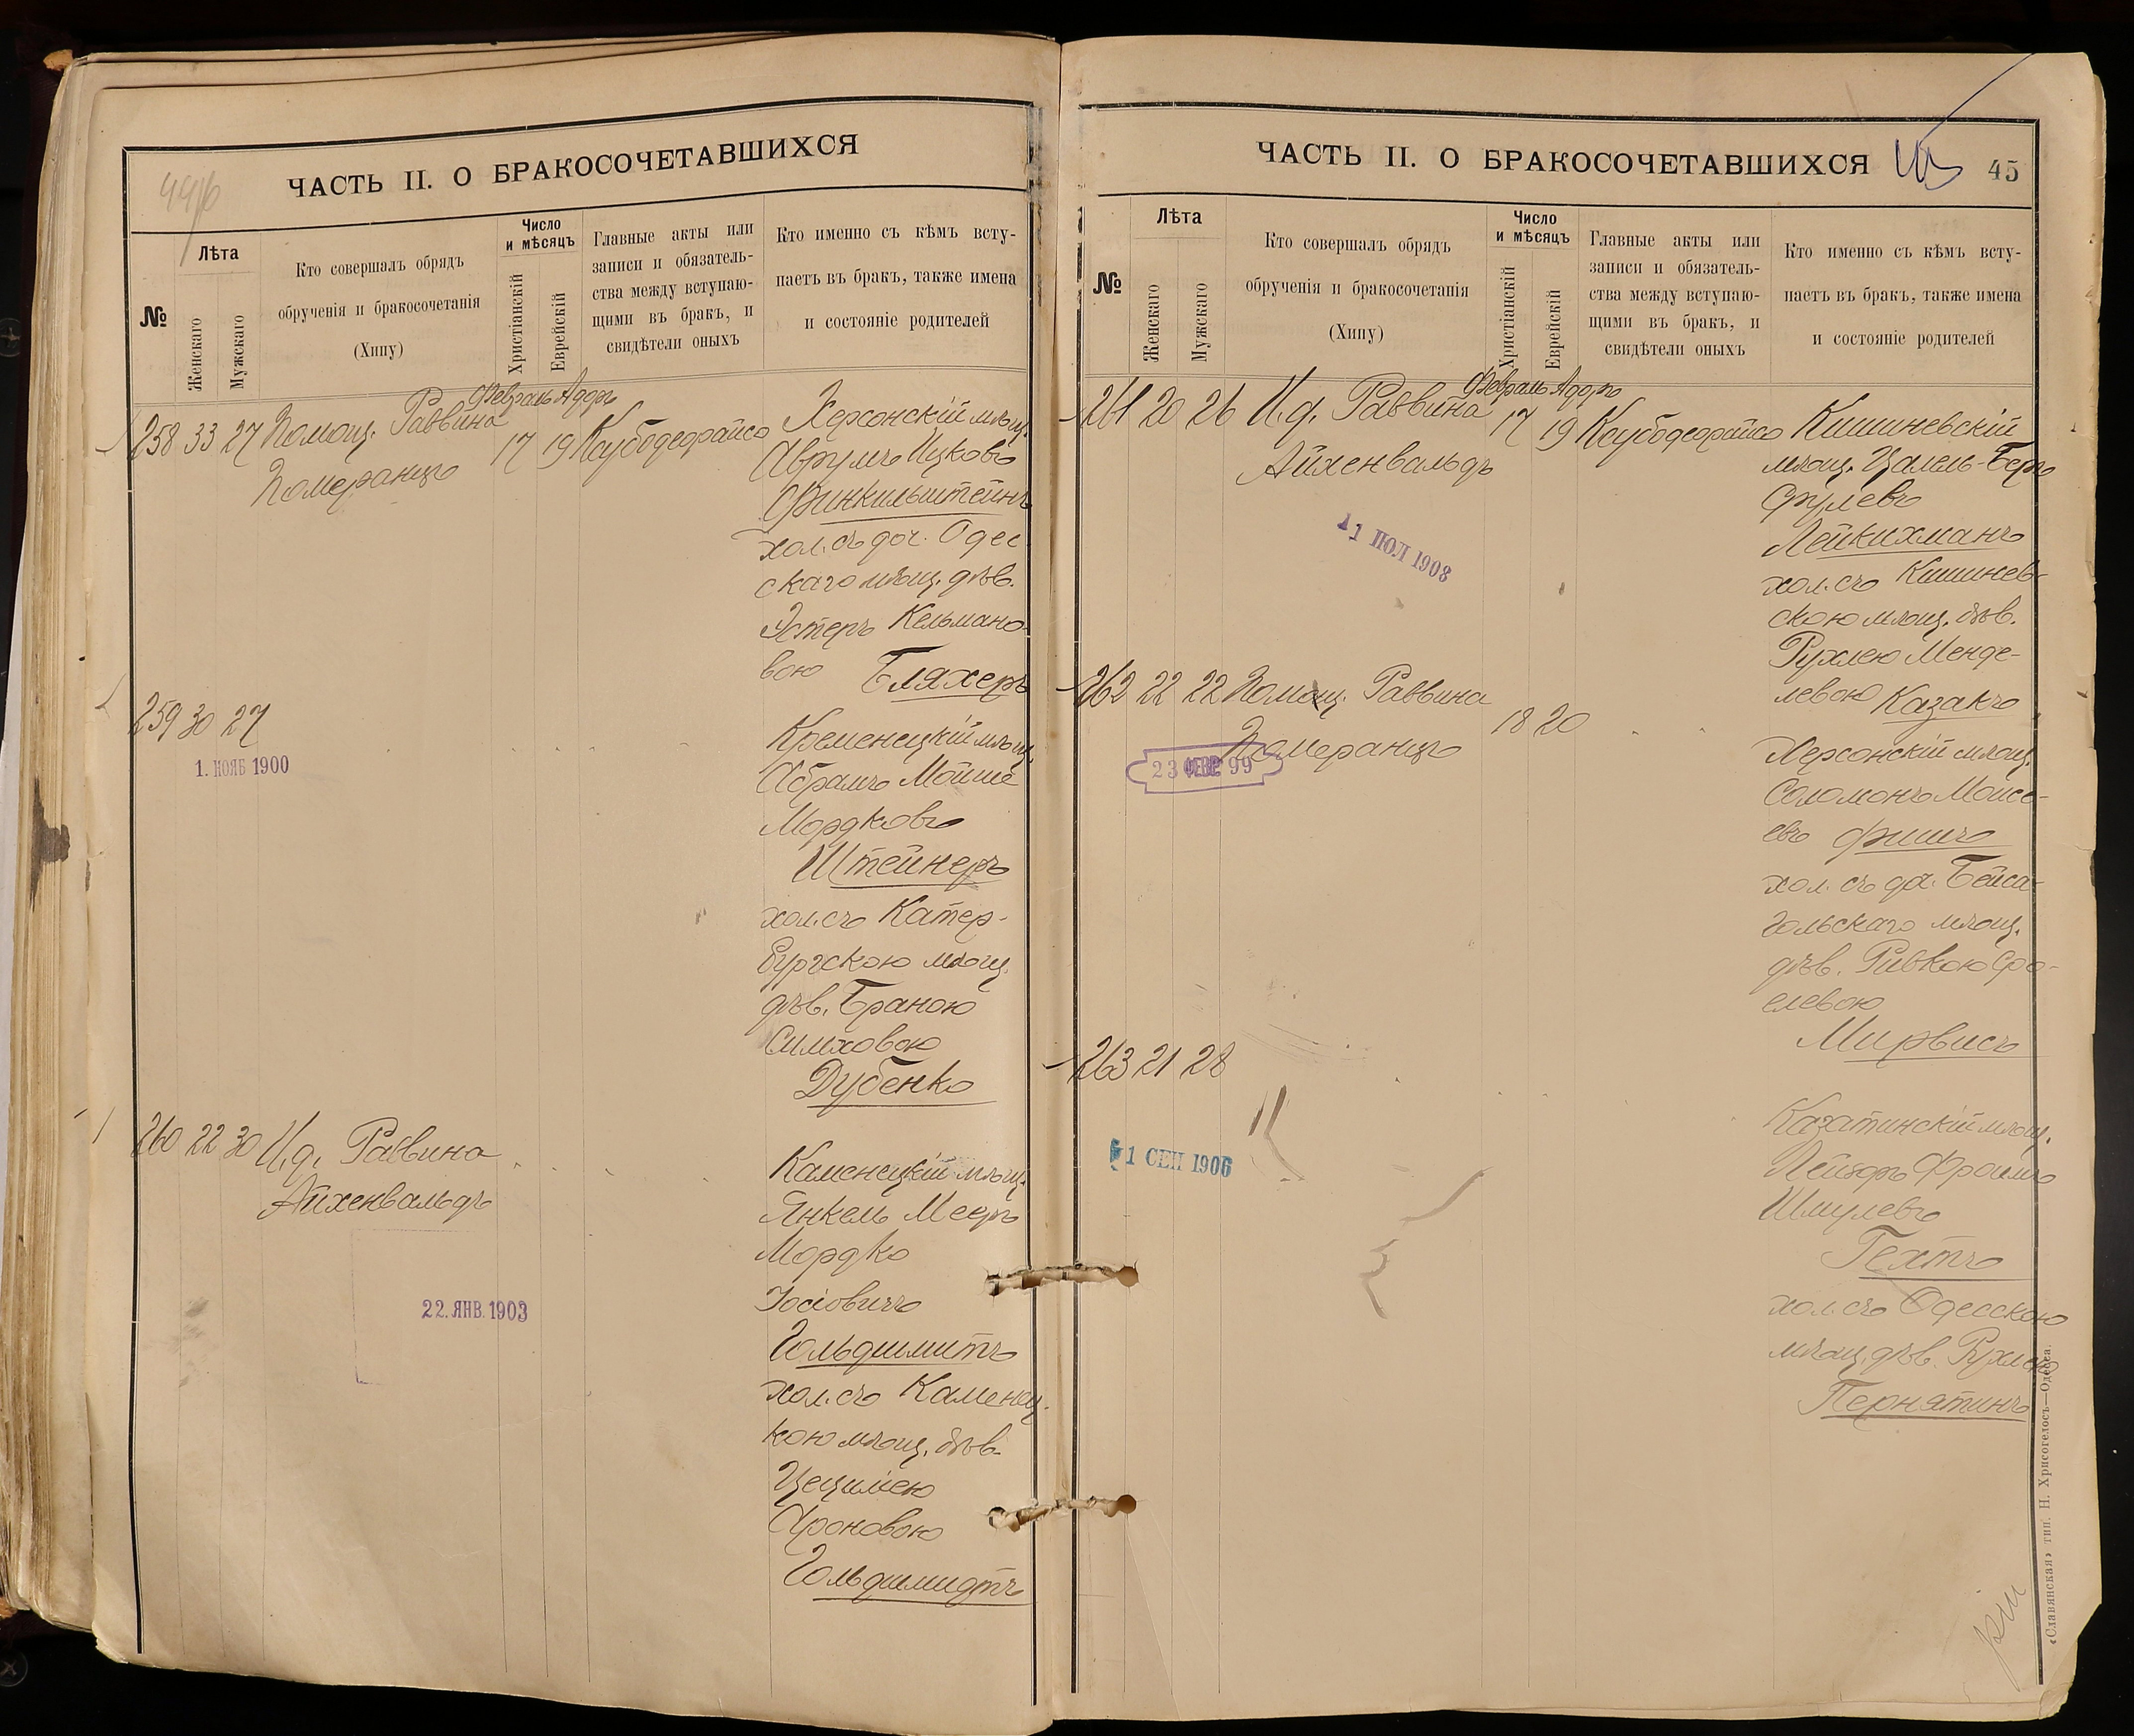 ЧАСТЬ II. О БРАКОСОЧЕТАВШИХСЯ
№
Лѣта
Женскаго
Мужскаго
Кто совершалъ обрядъ
обрученія и бракосочетанія
(Хипу)
Число
и мѣсяцъ
Христіанскій
Еврейскій
Главные акты или
записи и обязатель-
ства между вступаю-
щими въ бракъ, и
свидѣтели оныхъ
Кто именно съ кѣмъ всту-
паетъ въ бракъ, также имена
и состояніе родителей
Февраль Адоръ
258 33 27 Помощ. Раввина
Померанцъ
17 19
Херсонскій мѣщ.
Аврумъ Ицковъ
Финкильштейнъ
хол. съ доч. Одес
скаго мѣщ. дѣв.
Эстеръ Кельмано-
вою Бляхеръ
259 30 27
1. НОЯБ 1900
Кременецкій мѣщ.
Абрамъ Мойше
Мордковъ
Штейнеръ
хол. съ Катер-
бургскою мѣщ.
дѣв. Браною
Симховою
Дубенко
260 22 30 И.д. Раввина
Айхенвальдъ
22. ЯНВ. 1903
Каменецкій мѣщ.
Янкель Мееръ
Мордко
Іосіовичъ
Гольдшмитъ
хол. съ Каменец.
кою мѣщ. дѣв.
Цецилiею
Ароновою
Гольдшмидтъ
ЧАСТЬ II. О БРАКОСОЧЕТАВШИХСЯ
45
№
Лѣта
Женскаго
Мужскаго
Кто совершалъ обрядъ
обрученія и бракосочетанія
(Хипу)
Число
и мѣсяцъ
Христіанскій
Еврейскій
Главные акты или
записи и обязатель-
ства между вступаю-
щими въ бракъ, и
свидѣтели оныхъ
Кто именно съ кѣмъ всту-
паетъ въ бракъ, также имена
и состояніе родителей
Февраль Адоръ
261 20 26 И.д. Раввина
Айхенвальдъ
17 19
11 ІЮЛ 1908
Кишиневскій
мѣщ. Цалель-Беръ
Срулевъ
Лейкихманъ
хол. съ Кишинев-
скою мѣщ. дѣв.
Рухлею Менде-
левою Казакъ
262 22 22 Помощ. Раввина
Померанцъ
18 20
23 ФЕВР 99
Херсонскій мѣщ.
Соломонъ Моисе-
евъ Фишъ
хол. съ доч. Бейса-
гольскаго мѣщ.
дѣв. Ривкою Сро-
елевою
Мирвисъ
263 21 28
1 СЕН 1906
Казатинскій мѣщ.
Лейзоръ Фроимъ
Шмулевъ
Гехтъ
хол. съ Одесскою
мѣщ. дѣв. Рухлею
Пернятинъ
«Славянская» тип. Н. Хрисогелосъ—Одесса.